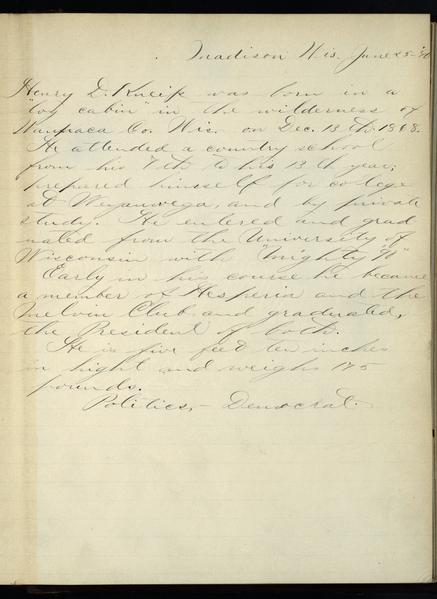 Madison Wis. June 25-'90
Henry D. Kneip was born in a
"log cabin" in the wilderness of
Waupaca Co. Wis. on Dec. 13th. 1868.
He attended a country school
from his 7th to his 13th year;
prepared himself for college
at Weyauwega, and by private
study. He entered and grad
uated from the University of
Wisconsin with "mighty '90"
Early in his course he became
a member of Hesperia and the
Melvin Club and graduated,
the President of both.
He is five feet ten inches
in hight and weighs 175
pounds.
Politics,- Democrat.